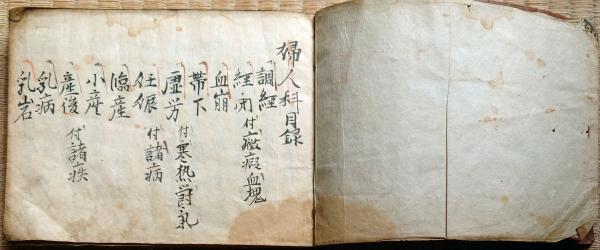 婦人科目録
調經
經閉 付癥瘕血塊
血崩
帯下
虚労 付寒熱鬱氣
妊娠 付諸病
臨産
小産
産後 付諸疾
乳病
乳岩